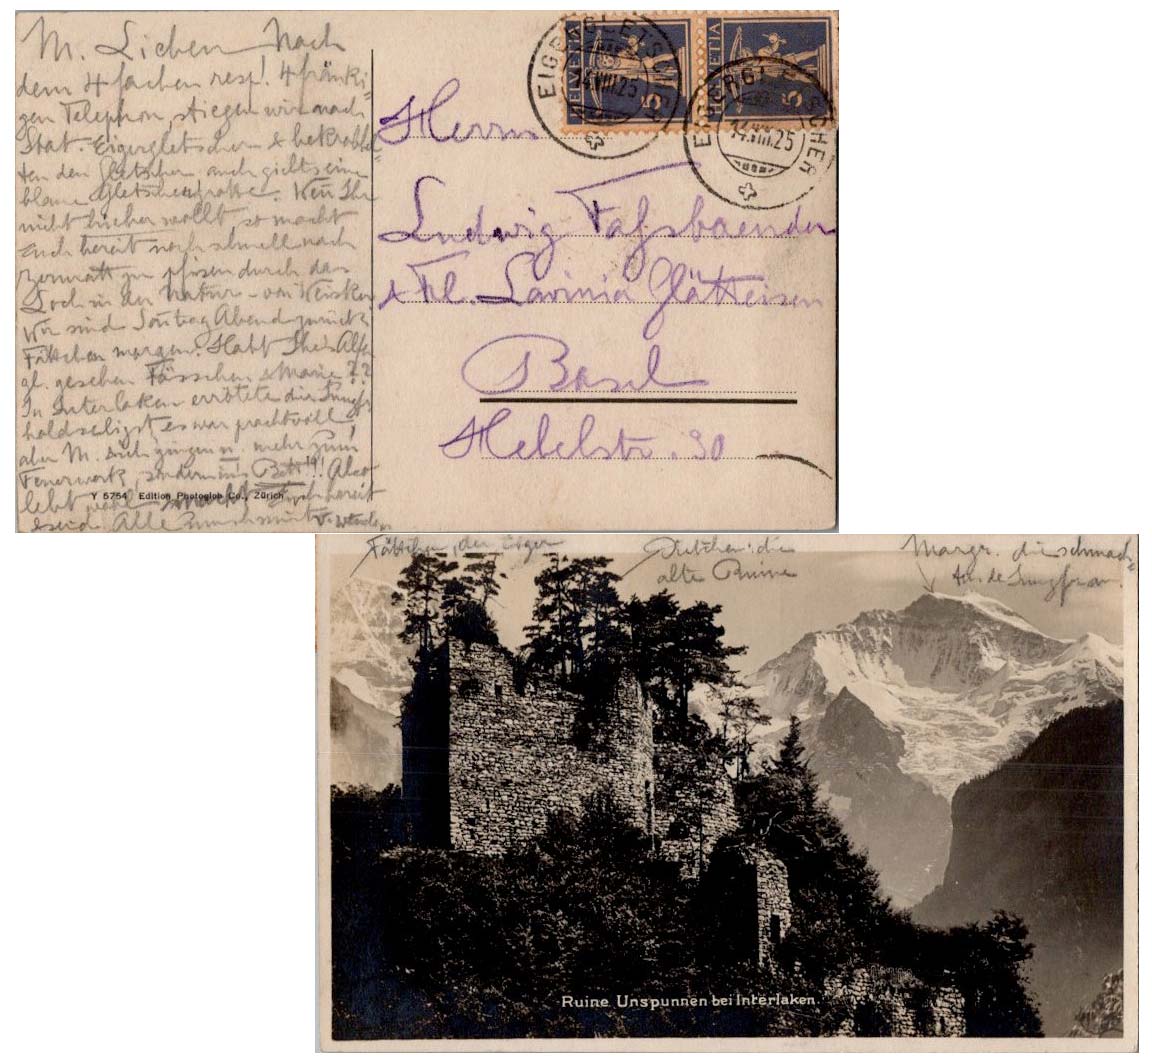 M. Lieben Nach
dem 4 fachen resp! 4 fränki-
gen Telephon, stiegen wir nach
Stat. Eigergletscher & bekrabbel-
ten den Gletscher auch giebts eine
blaue Gletschergrotte. Wen Ihr
nicht hieher wollt so macht
Euch bereit noch schnell nach
Zermatt zu durch das
Loch in der Natur - von
Wir sind Sontag Abend zurück
Fättchen morgen. Habt Ihr's Alpen
gl. gesehen Fässchen & Marie??
In Interlaken errötete die Jungfr
holdseligst, es war prachtvoll
aber M. gingen n. mehr zum
Feuerwerk, sondern ins Bett!!! Also
lebt wohl Euch bereit
& seid Alle
Y 5754 Edition Photoglob Co., Zürich
HELVETIA 5
HELVETIA 5
EIGERGLETSCHER
14.VIII.25
EIGERGLETSCHER
14.VIII.25
Herrn
Ludwig Fassbaender
& Frl. Lavinia Glätteisen
Basel
Hebelstr. 30
Fättchen, der Eiger
die
alte Ruine
Margr. die schmach-
tende Jungfrau
Ruine Unspunnen bei Interlaken.